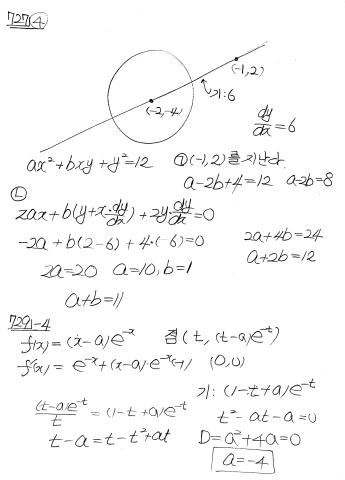 727 ④
(-1,2)
(-2,-4)
기:6
dy/dx = 6
ax² + bxy + y² = 12
㉠ (-1,2)를 지난다.
a-2b+4=12 a-2b=8
㉡
2ax + b(y+x·dy/dx) + 2y·dy/dx = 0
-2a + b(2-6) + 4·(-6) = 0
2a+4b=24
a+2b=12
2a=20 a=10, b=1
a+b=11
729) -4
f(x) = (x-a)e^-x 점 (t, (t-a)e^-t)
f'(x) = e^-x + (x-a)·e^-x(-1) (0,0)
기: (1-t+a)e^-t
(t-a)e^-t/t = (1-t+a)e^-t
t² - at - a = 0
t-a = t-t²+at
D = a²+4a = 0
a = -4